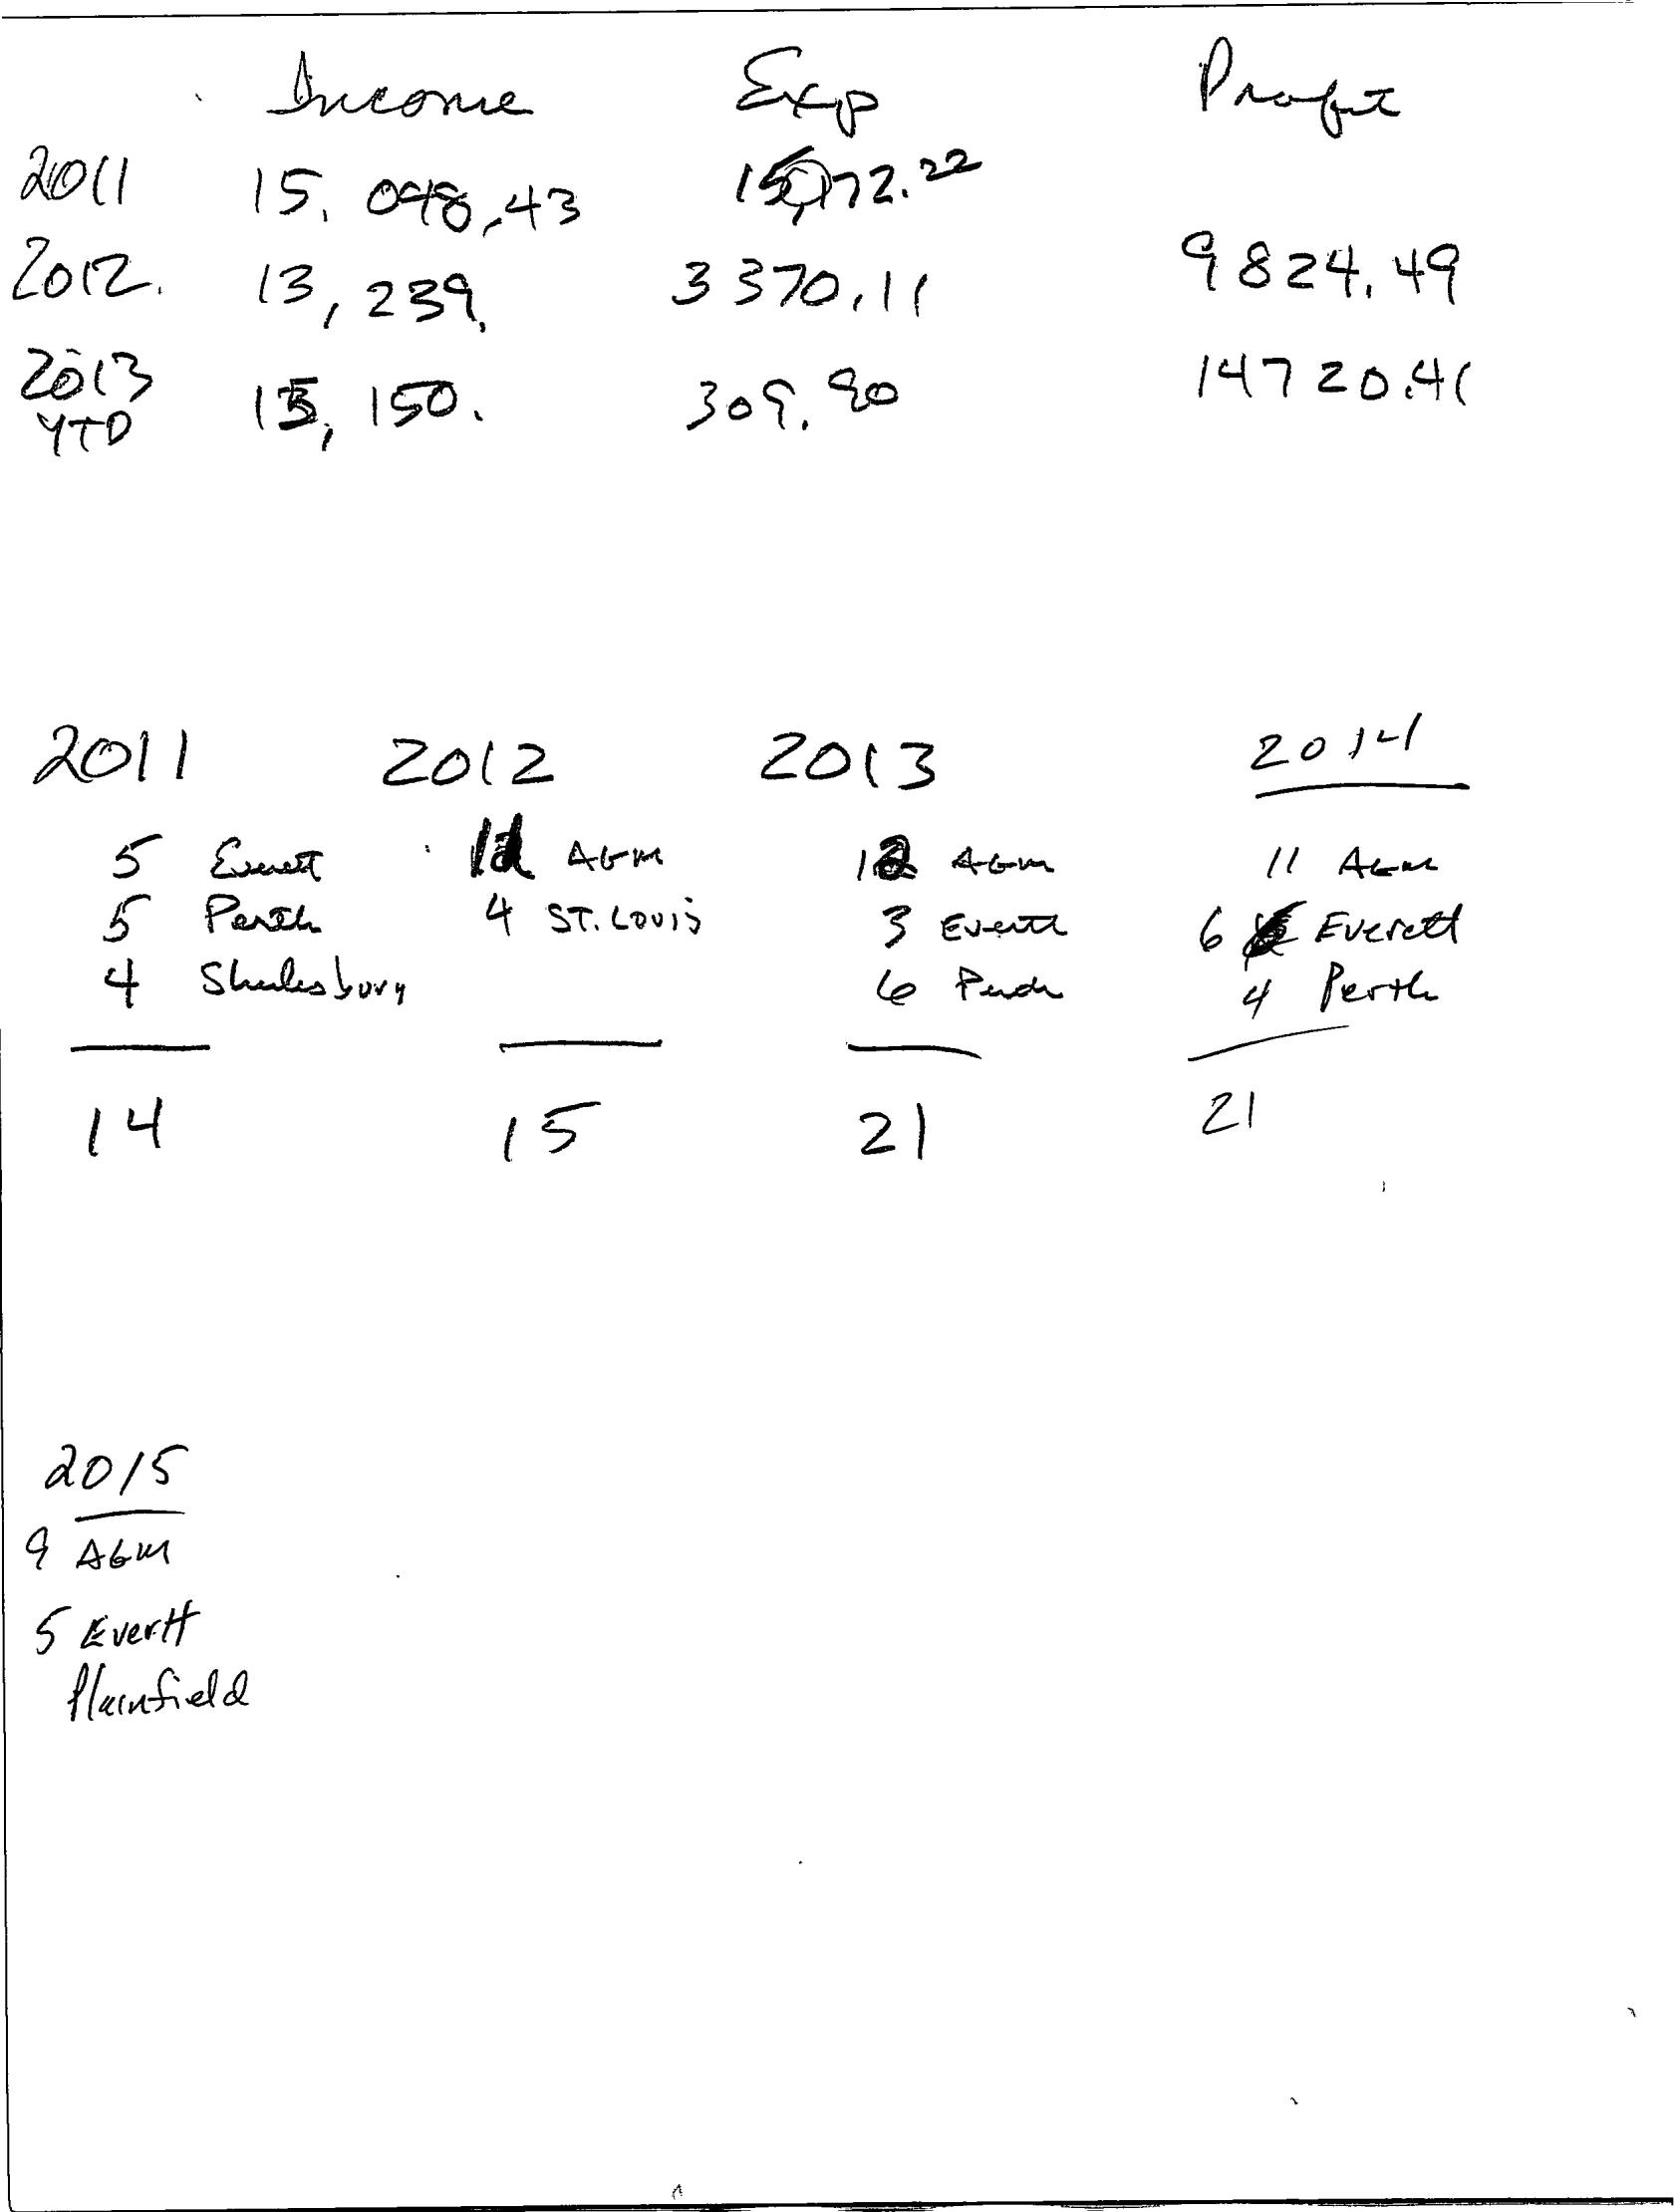 Income Exp Profit
2011 15,048.43 15,172.22
2012. 13,239. 3370.11 9824.49
2013 15,150. 309.90 14720.41
YTD
2011 2012 2013 2014
5 Everett AGM 12 AGM 11 AGM
5 Perth 4 ST. LOUIS 3 Everett 6 Everett
4 6 Perth 4 Perth
14 15 21 21
2015
9 AGM
5 Evertt
Plainfield